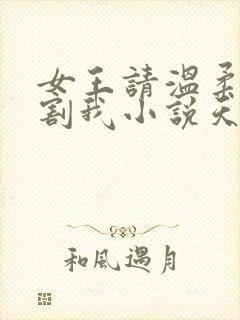 女王請溫柔
割我小說天
和風遇月